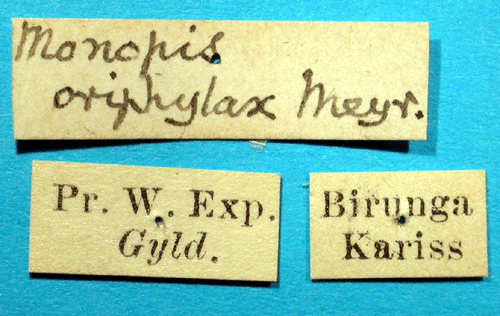 Monopis
oriphylax Meyr.
Pr. W. Exp.
Gyld.
Birunga
Kariss